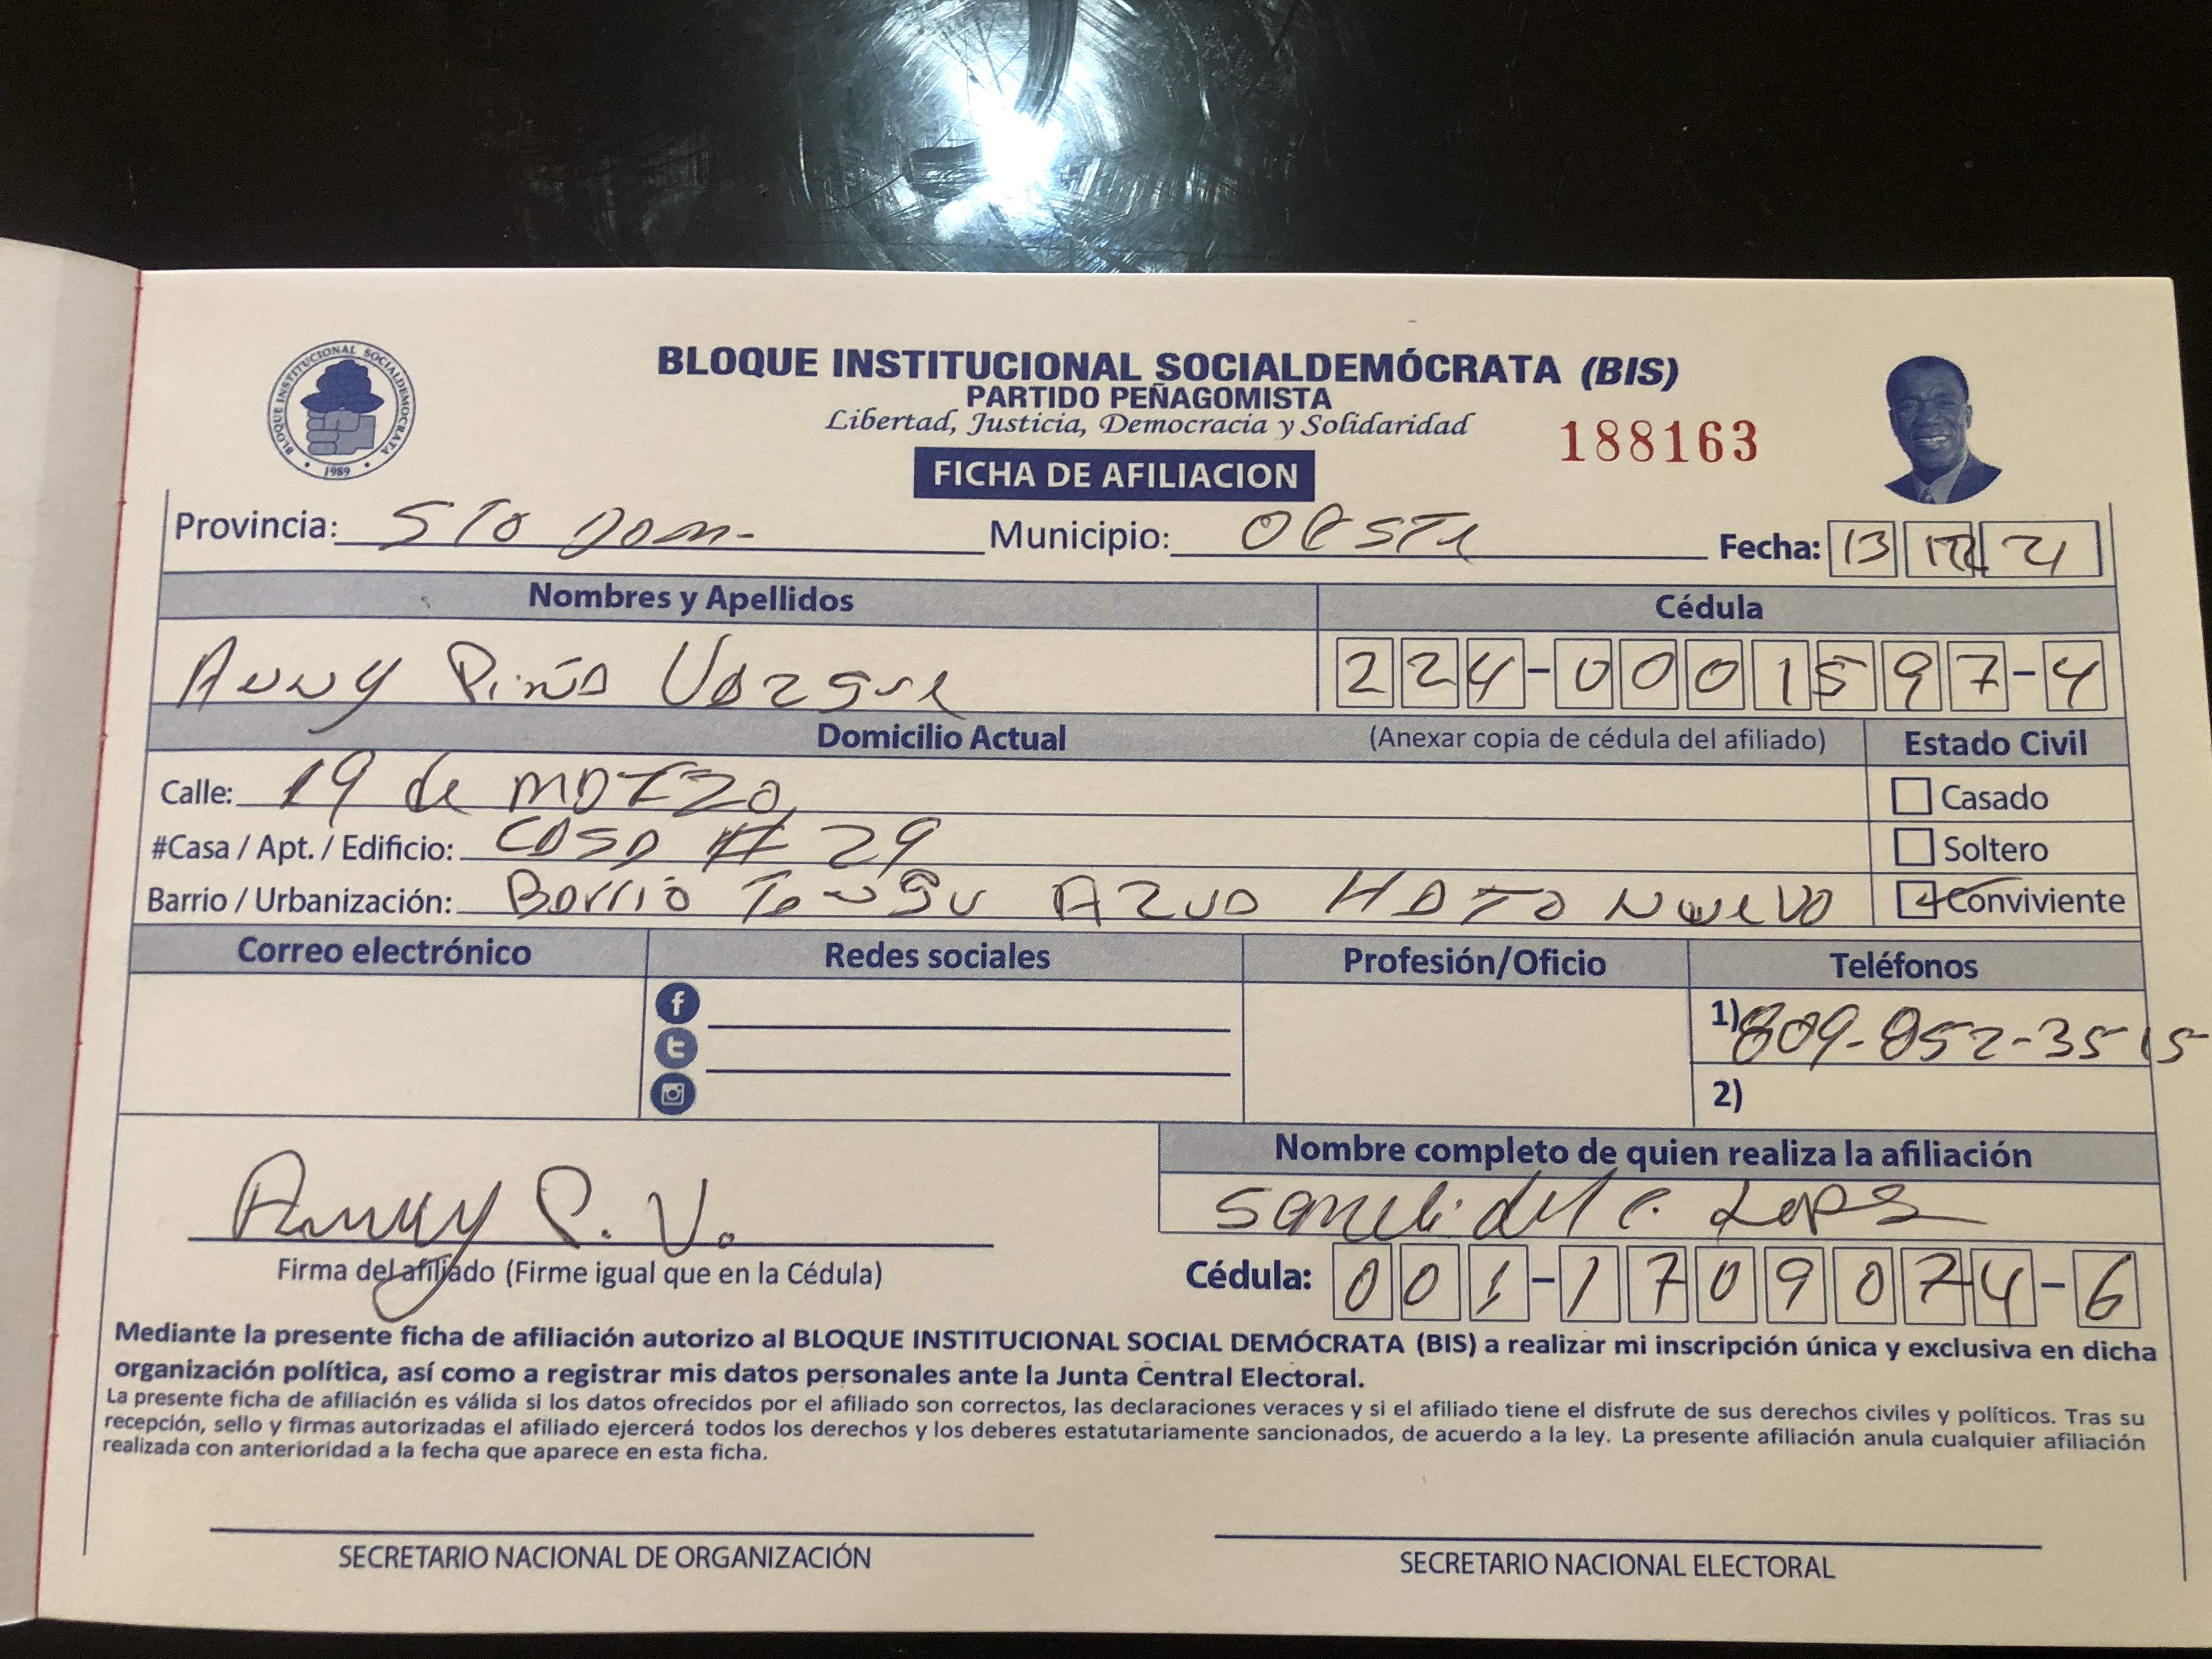 BLOQUE INSTITUCIONAL SOCIALDEMOCRATA
1989
BLOQUE INSTITUCIONAL SOCIALDEMÓCRATA (BIS)
PARTIDO PEÑAGOMISTA
Libertad, Justicia, Democracia y Solidaridad
188163
FICHA DE AFILIACION
Provincia: STO DOM- Municipio: OESTE Fecha: 13 12 21
Nombres y Apellidos Cédula
Anny Piña Vasque 224-0001597-4
Domicilio Actual (Anexar copia de cédula del afiliado) Estado Civil
Calle: 19 de marzo Casado
#Casa / Apt. / Edificio: Casa # 29 Soltero
Barrio / Urbanización: Barrio Azua Hato Nuevo Conviviente
Correo electrónico Redes sociales Profesión/Oficio Teléfonos
1) 809-852-3515
2)
Nombre completo de quien realiza la afiliación
Anny P. V.
Firma del afiliado (Firme igual que en la Cédula) Cédula: 001-1709074-6
Mediante la presente ficha de afiliación autorizo al BLOQUE INSTITUCIONAL SOCIAL DEMÓCRATA (BIS) a realizar mi inscripción única y exclusiva en dicha
organización política, así como a registrar mis datos personales ante la Junta Central Electoral.
La presente ficha de afiliación es válida si los datos ofrecidos por el afiliado son correctos, las declaraciones veraces y si el afiliado tiene el disfrute de sus derechos civiles y políticos. Tras su
recepción, sello y firmas autorizadas el afiliado ejercerá todos los derechos y los deberes estatutariamente sancionados, de acuerdo a la ley. La presente afiliación anula cualquier afiliación
realizada con anterioridad a la fecha que aparece en esta ficha.
SECRETARIO NACIONAL DE ORGANIZACIÓN SECRETARIO NACIONAL ELECTORAL